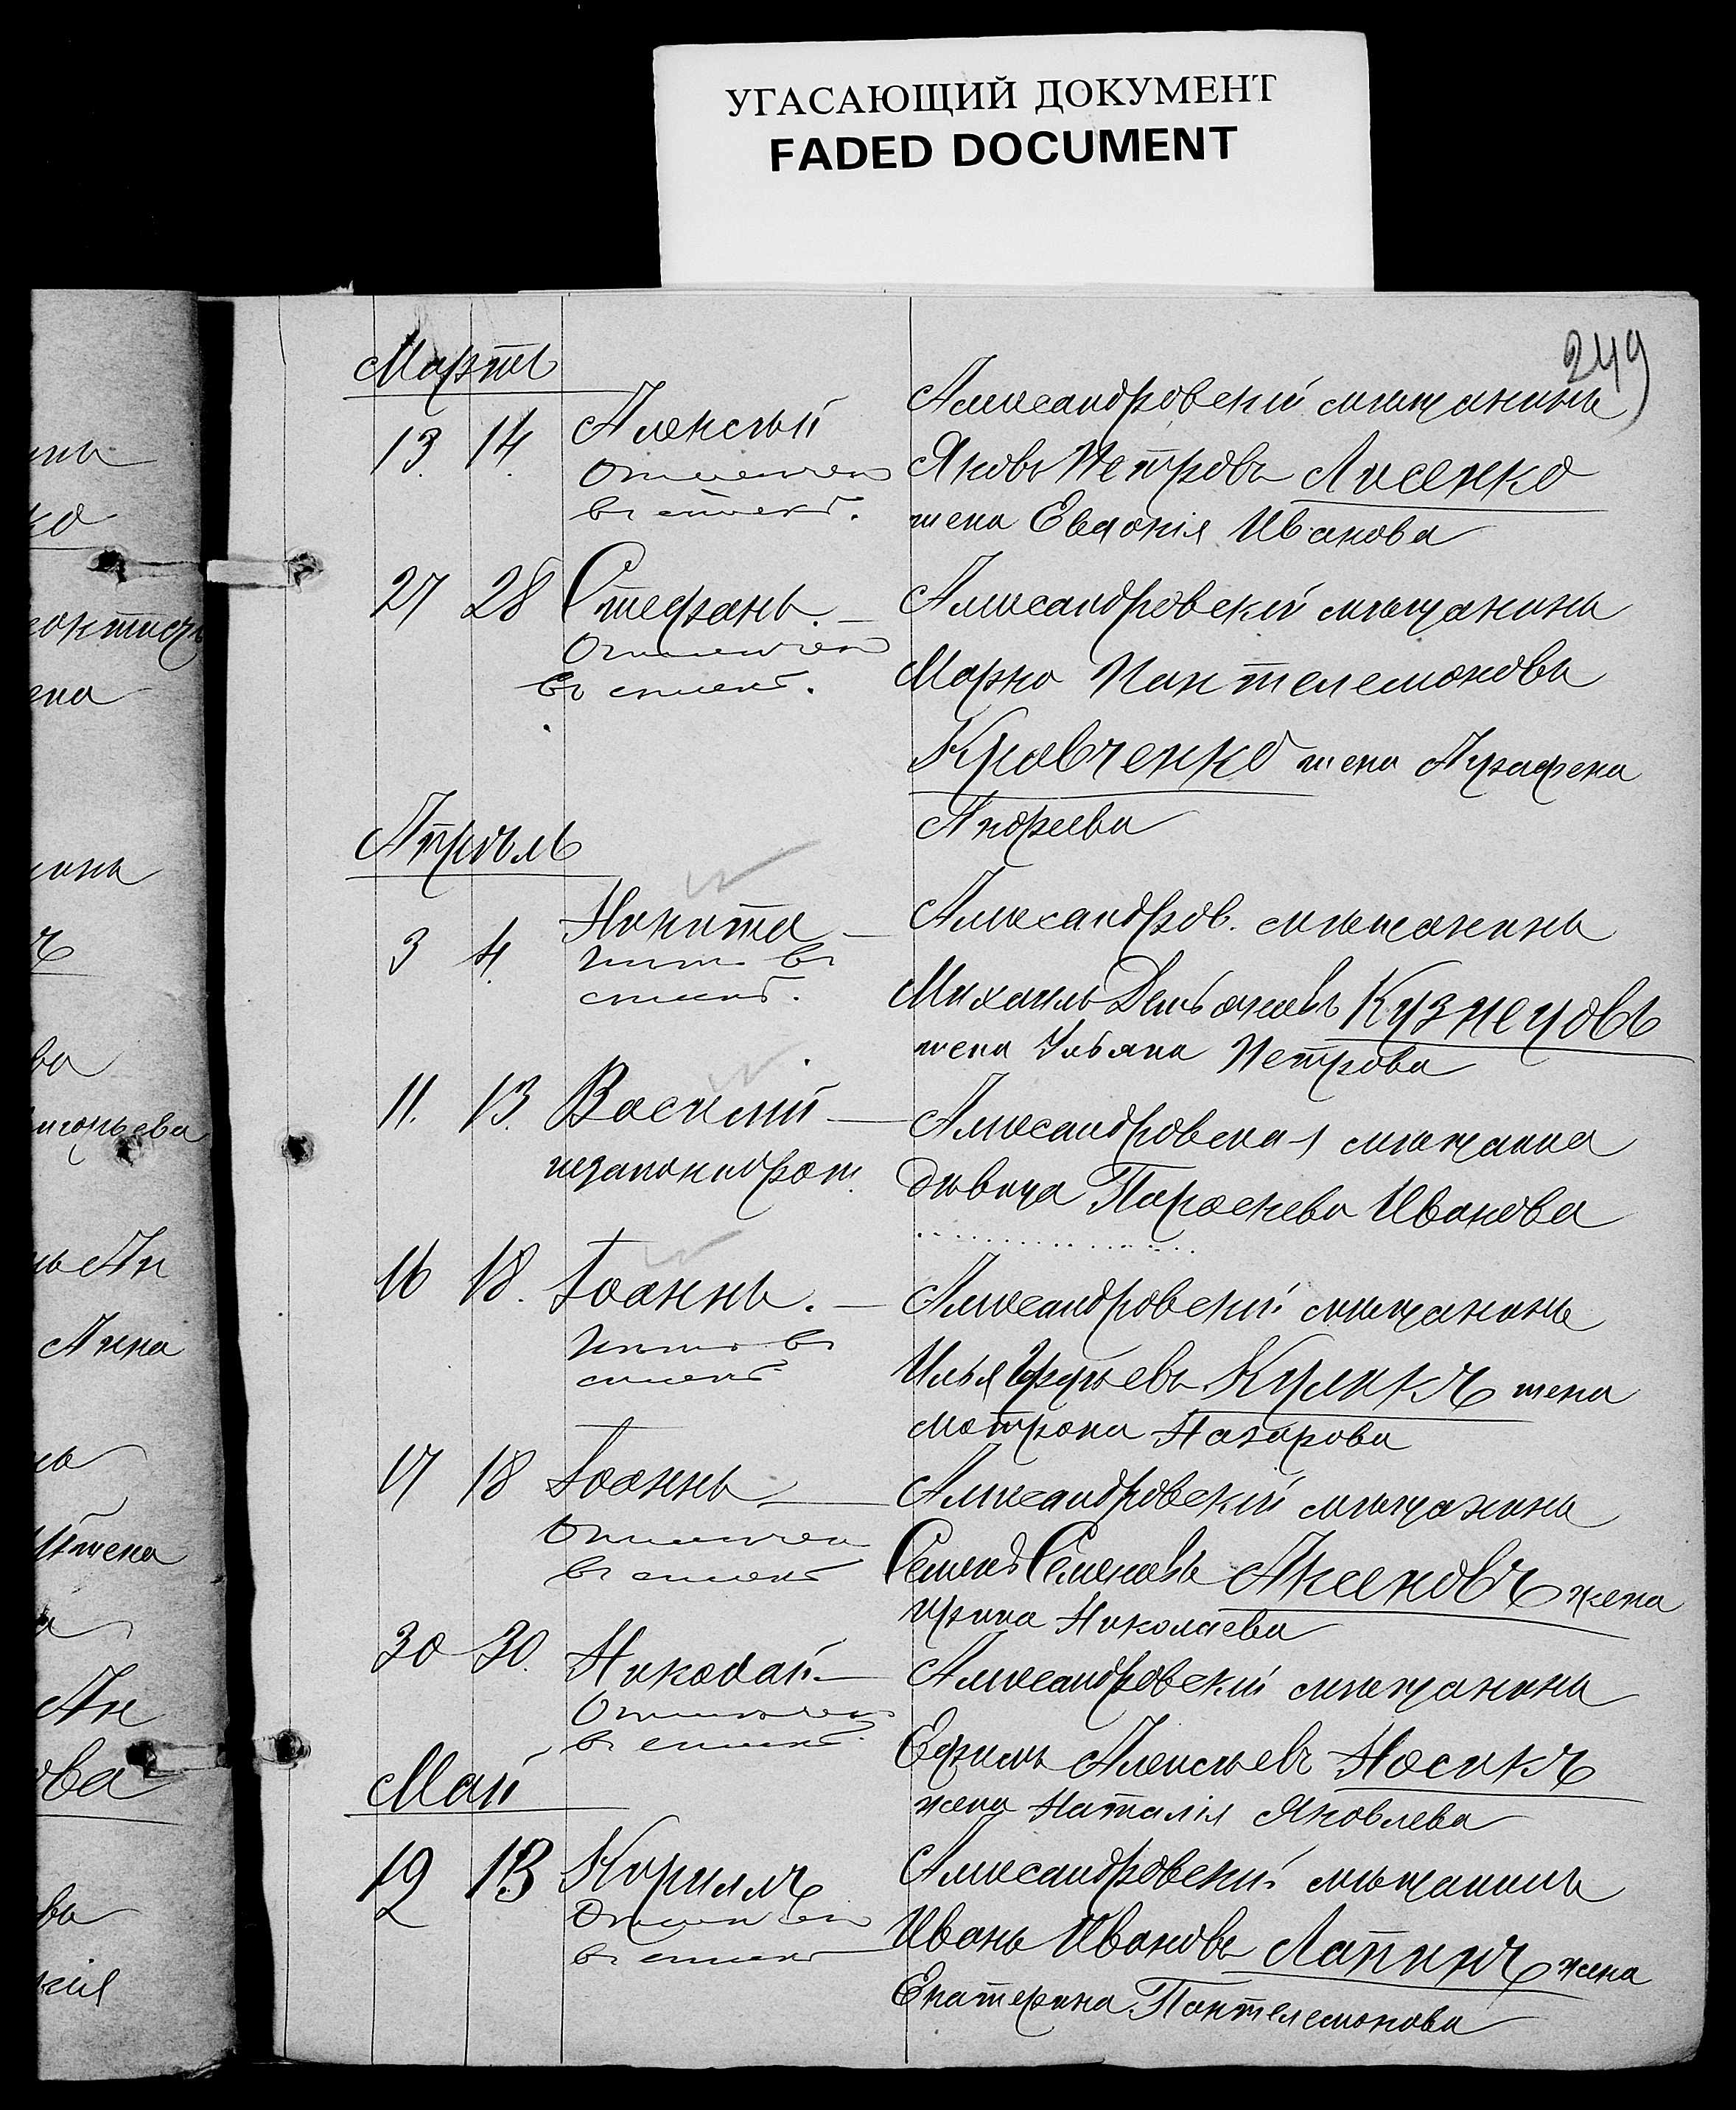 УГАСАЮЩИЙ ДОКУМЕНТ
FADED DOCUMENT
249
Мартъ
13. 14. Алексѣй
Отмечен
въ списке.
Александровскій мѣщанинъ
Яковъ Петровъ Лисенко
жена Евдокія Иванова
27 28 Стефанъ. —
Отмечен
въ списке.
Александровскій мѣщанинъ
Марко Пантелемоновъ
Кравченко жена Аграфена
Андреева
Апрѣль
3 4. Никита —
Нѣт въ
списке.
Александров. мѣщанинъ
Михаилъ Демьяновъ Кузнецовъ
жена Ульяна Петрова
11. 13. Василій —
незаконнорож.
Александровская мѣщанка
дѣвица Параскева Иванова
16 18. Іоаннъ. —
Нѣт въ
списке
Александровскій мѣщанинъ
Илья Юрьевъ Куликъ жена
Мотрона Назарова
17 18 Іоаннъ —
Отмечен
въ списке
Александровскій мѣщанинъ
Семенъ Семеновъ Аксеновъ жена
Ирина Николаева
30 30. Николай —
Отмечен
въ списке.
Александровскій мѣщанинъ
Ефимъ Алексѣевъ Носикъ
жена Наталія Яковлева
Май
12 13 Кириллъ
Отмечен
въ списке
Александровскій мѣщанинъ
Иванъ Ивановъ Лапинъ жена
Екатерина Пантелемонова